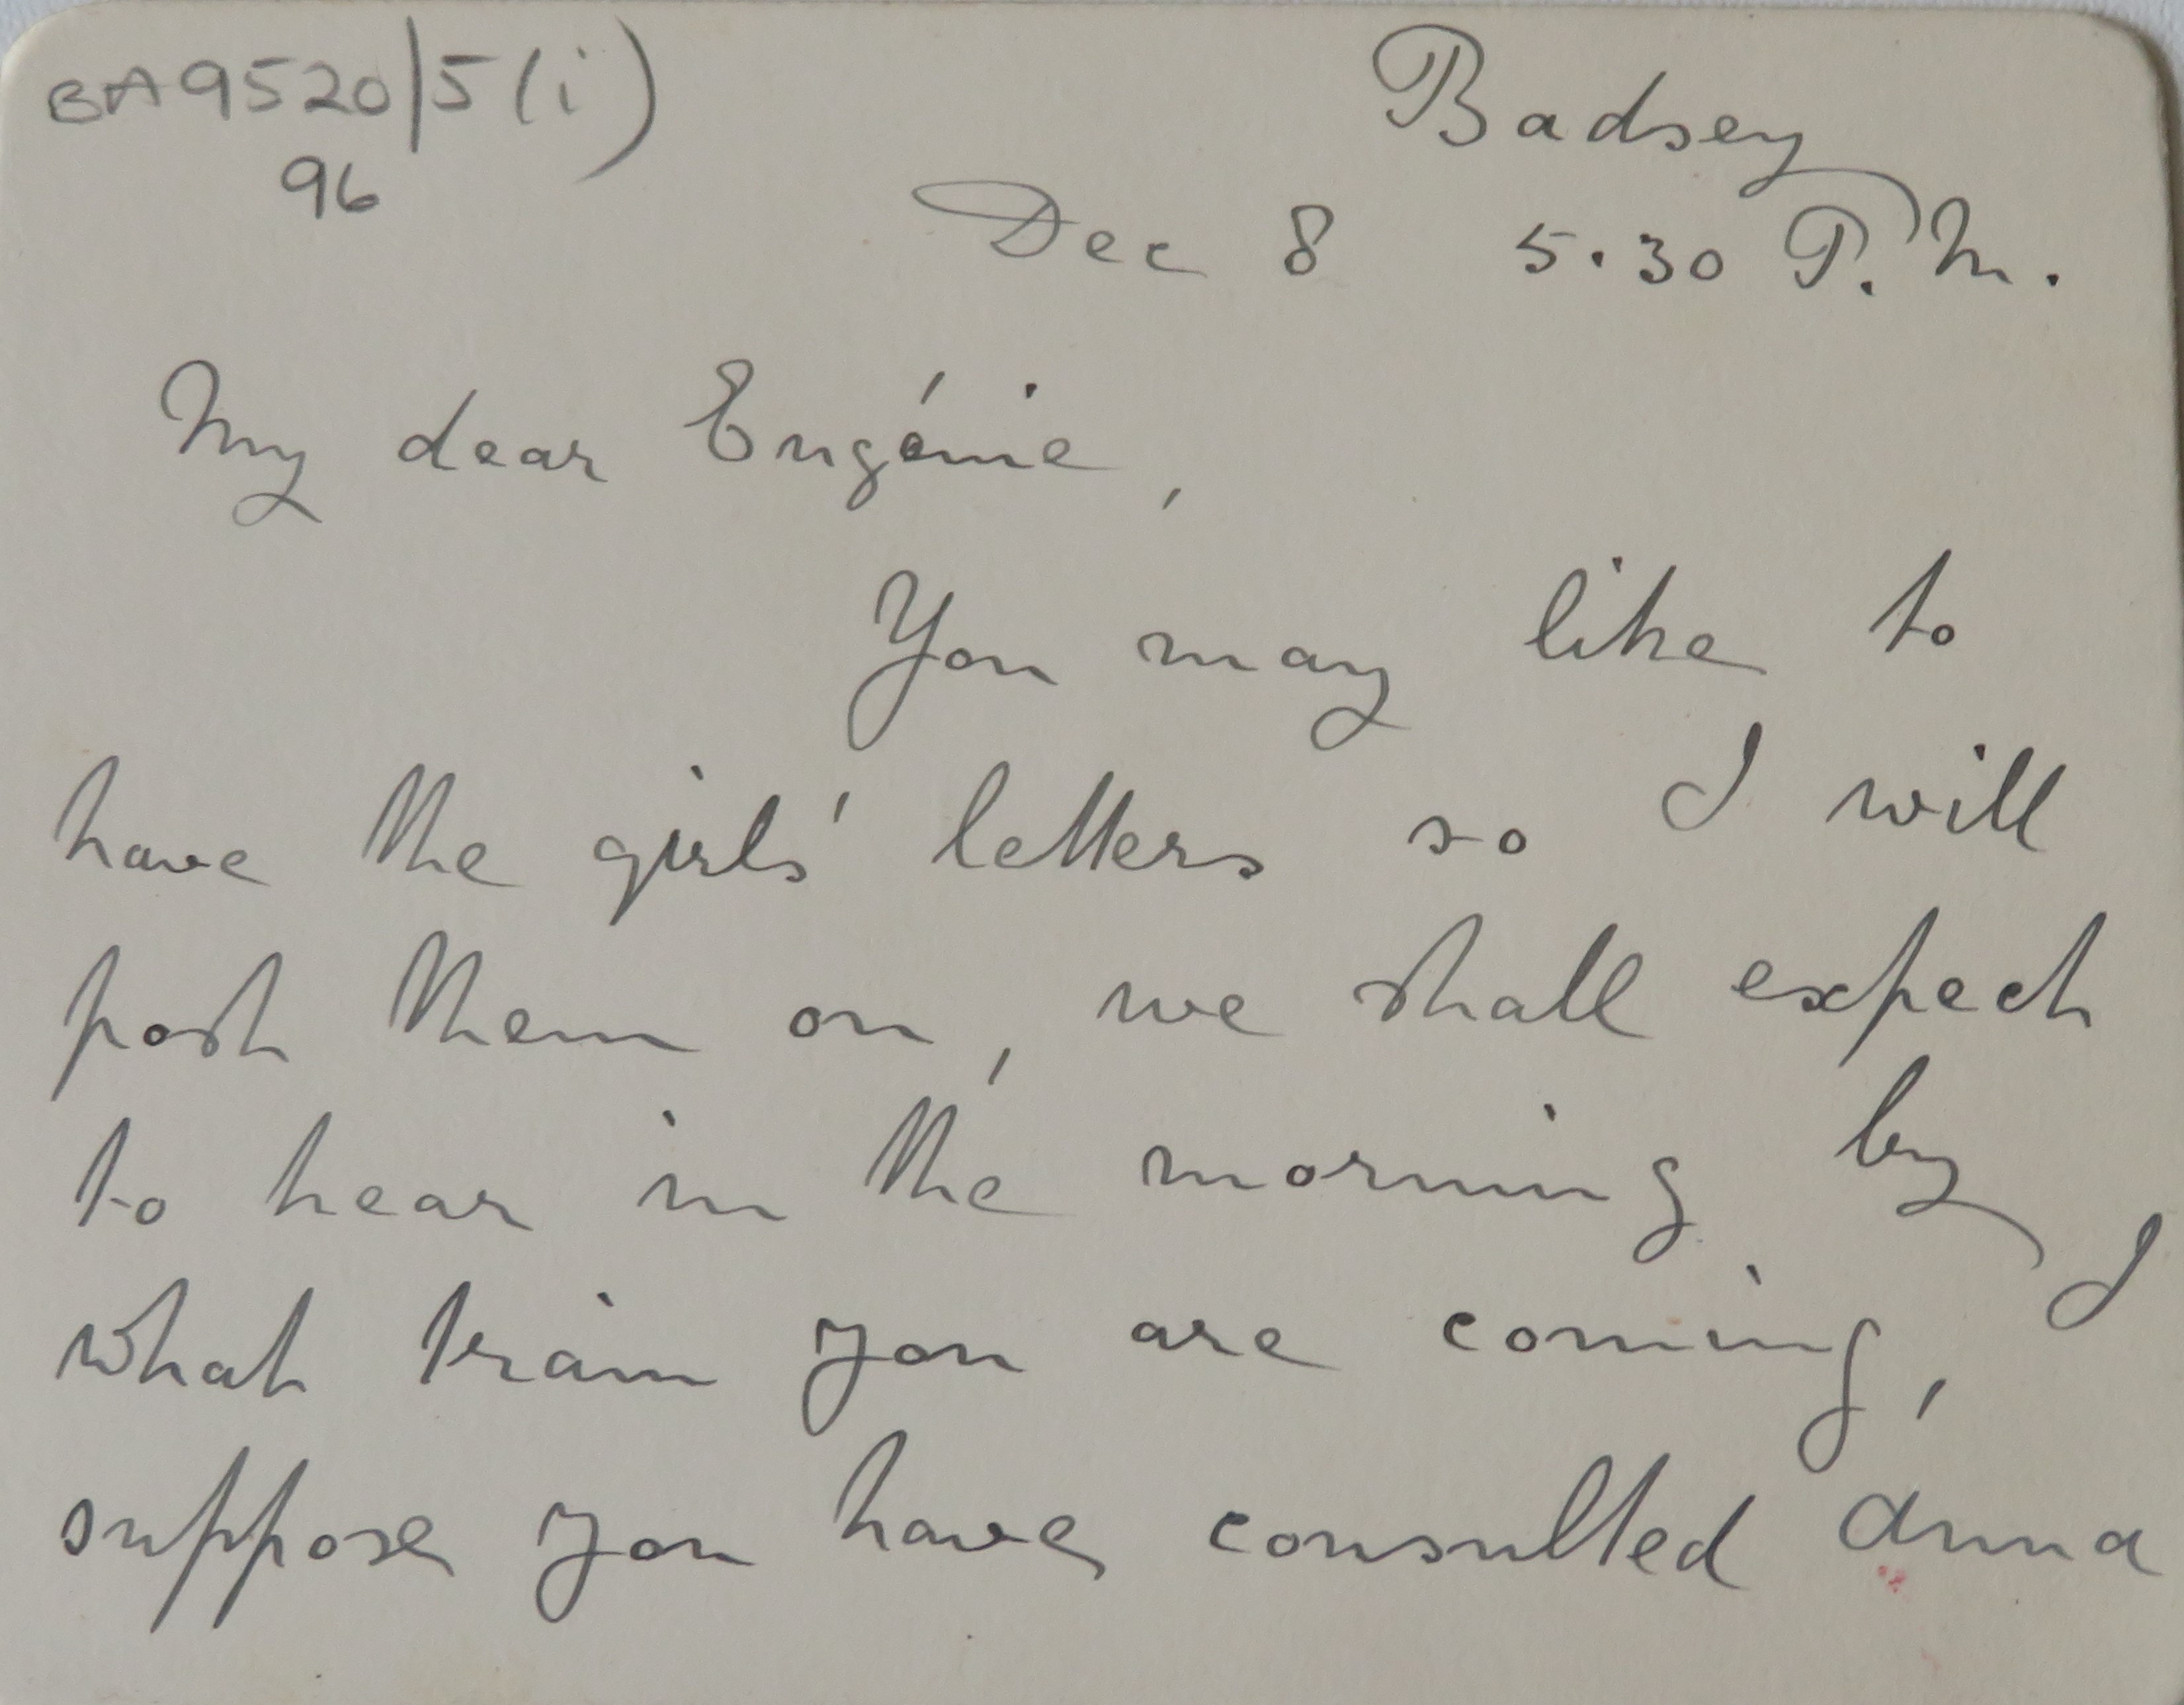 BA9520/5(i)
96
Badsey
Dec 8 5.30 P.M.
My dear Eugénie,
You may like to
have the girls' letters so I will
post them on, we shall expect
to hear in the morning by
what train you are coming, I
suppose you have consulted Anna